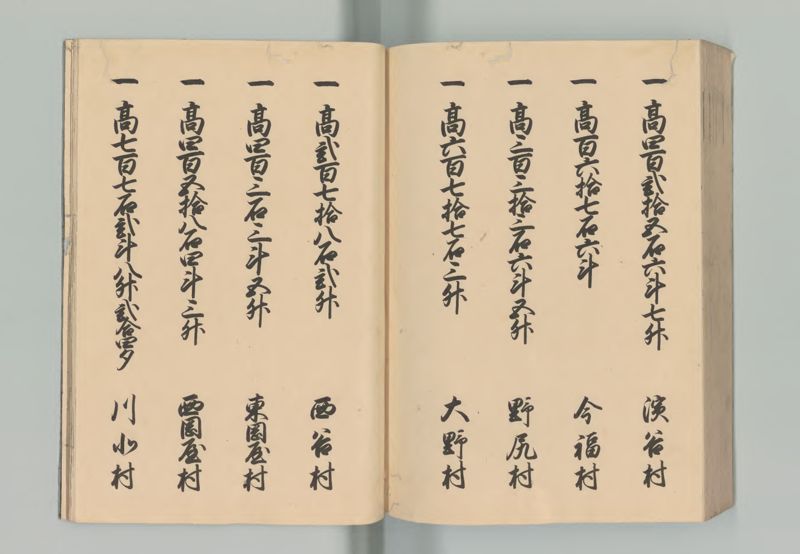 一 高四百弐拾五石六斗七升 濱谷村
一 高百六拾七石六斗 今福村
一 高三百三拾三石六斗五升 野尻村
一 高六百七拾七石三升 大野村
一 高弐百七拾八石弐升 西谷村
一 高四百三石三斗五升 東園屋村
一 高四百五拾八石四斗三升 西園屋村
一 高七百七石弐斗八升弐合四夕 川北村